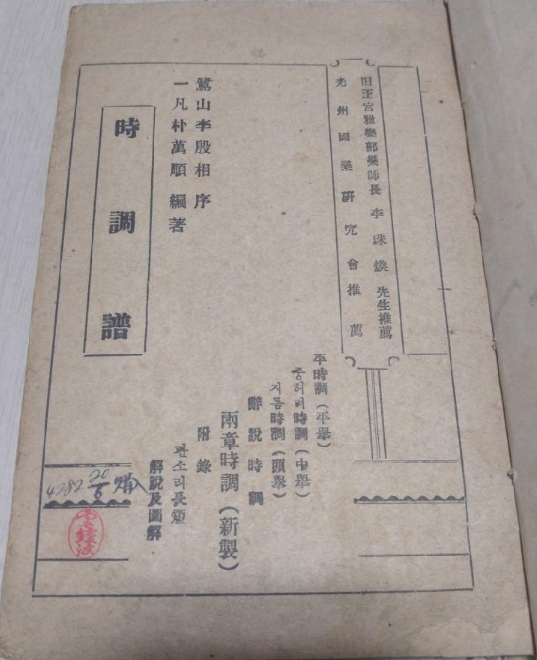 旧王宮雅樂部樂師長 李珠煥 先生推薦
光州國樂研究會推薦
鷺山李殷相 序
一凡朴萬順 編著
時調譜
平時調(平擧)
중허리時調(中擧)
지름時調(頭擧)
辭說時調
兩章時調(新製)
附錄
판소리長短
解說及圖解
4282